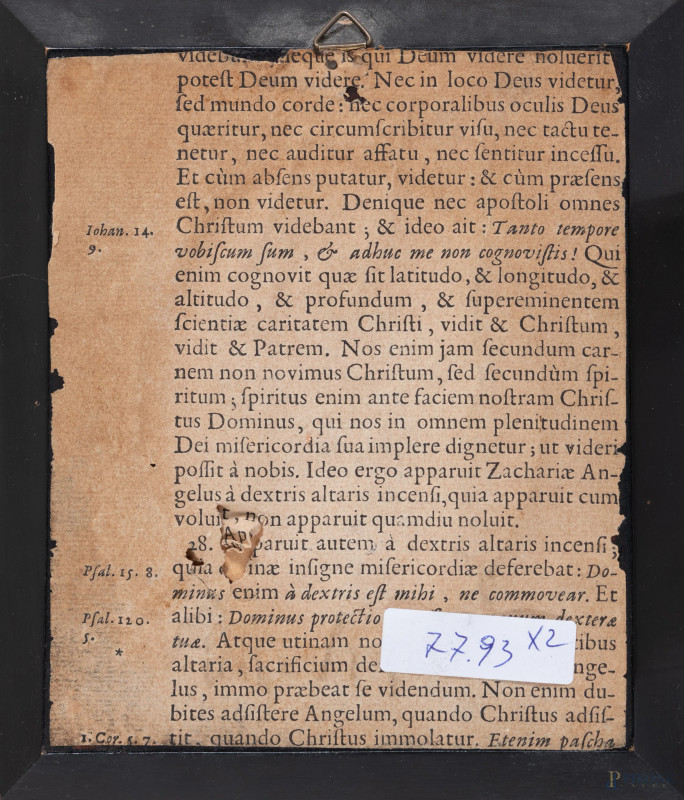 qui Deum videre noluerit
poteſt Deum videre. Nec in loco Deus videtur,
ſed mundo corde: nec corporalibus oculis Deus
quæritur, nec circumſcribitur viſu, nec tactu te-
netur, nec auditur affatu, nec ſentitur inceſſu.
Et cùm abſens putatur, videtur: & cùm præſens
eſt, non videtur. Denique nec apoſtoli omnes
Iohan. 14. Chriſtum videbant; & ideo ait: Tanto tempore
9. vobiſcum ſum, & adhuc me non cognoviſtis! Qui
enim cognovit quæ ſit latitudo, & longitudo, &
altitudo, & profundum, & ſupereminentem
ſcientiæ caritatem Chriſti, vidit & Chriſtum,
vidit & Patrem. Nos enim jam ſecundum car-
nem non novimus Chriſtum, ſed ſecundùm ſpi-
ritum; ſpiritus enim ante faciem noſtram Chriſ-
tus Dominus, qui nos in omnem plenitudinem
Dei miſericordia ſua implere dignetur; ut videri
poſſit à nobis. Ideo ergo apparuit Zachariæ An-
gelus à dextris altaris incenſi, quia apparuit cum
voluit, non apparuit quamdiu noluit.
28. paruit autem à dextris altaris incenſi;
Pſal. 15. 8. quia inæ inſigne miſericordiæ deferebat: Do-
minus enim à dextris eſt mihi, ne commovear. Et
Pſal. 120. alibi: Dominus protectio dexteræ
5. tuæ. Atque utinam no tibus
* altaria, ſacrificium de nge-
lus, immo præbeat ſe videndum. Non enim du-
bites adſiſtere Angelum, quando Chriſtus adſiſ-
1. Cor. 5. 7. tit, quando Chriſtus immolatur. Etenim paſcha
77.93 X2
P